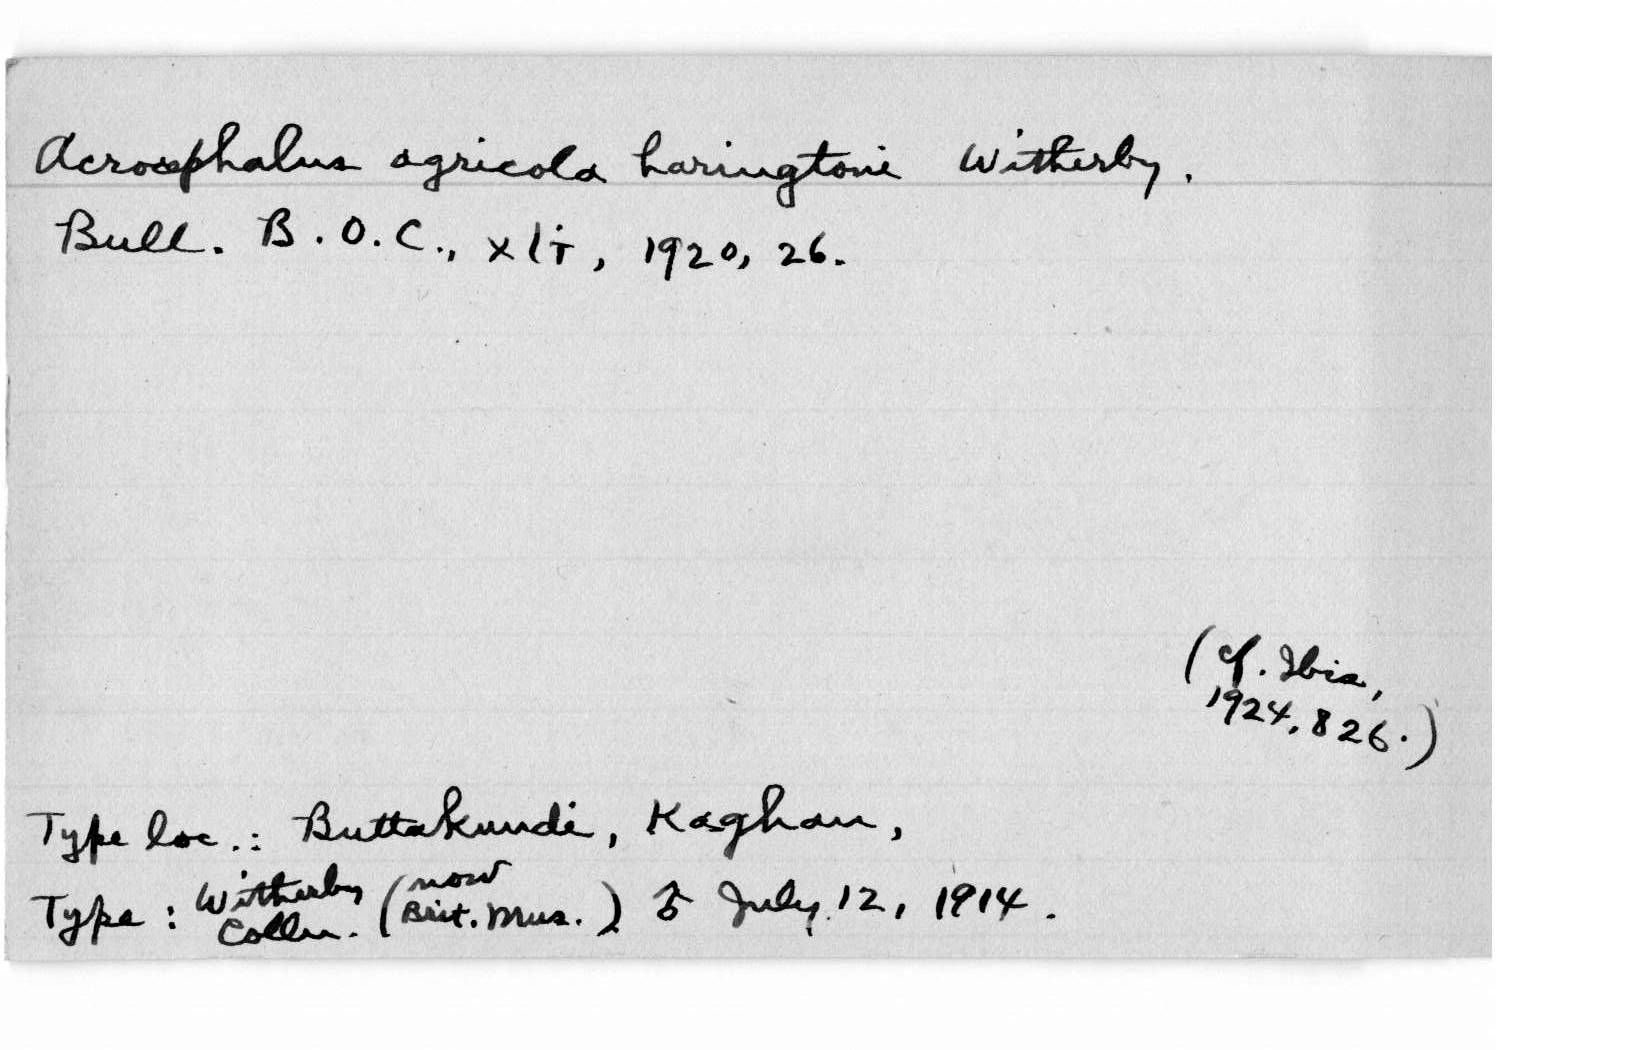 Acrocephalus agricola haringtoni Witherby.
Bull. B.O.C., xli, 1920, 26.
(cf. Ibis,
1924, 826.)
Type loc.: Buttakundi, Kaghan,
Type: Witherby Colln. (now Brit. Mus.) ♂ July 12, 1914.